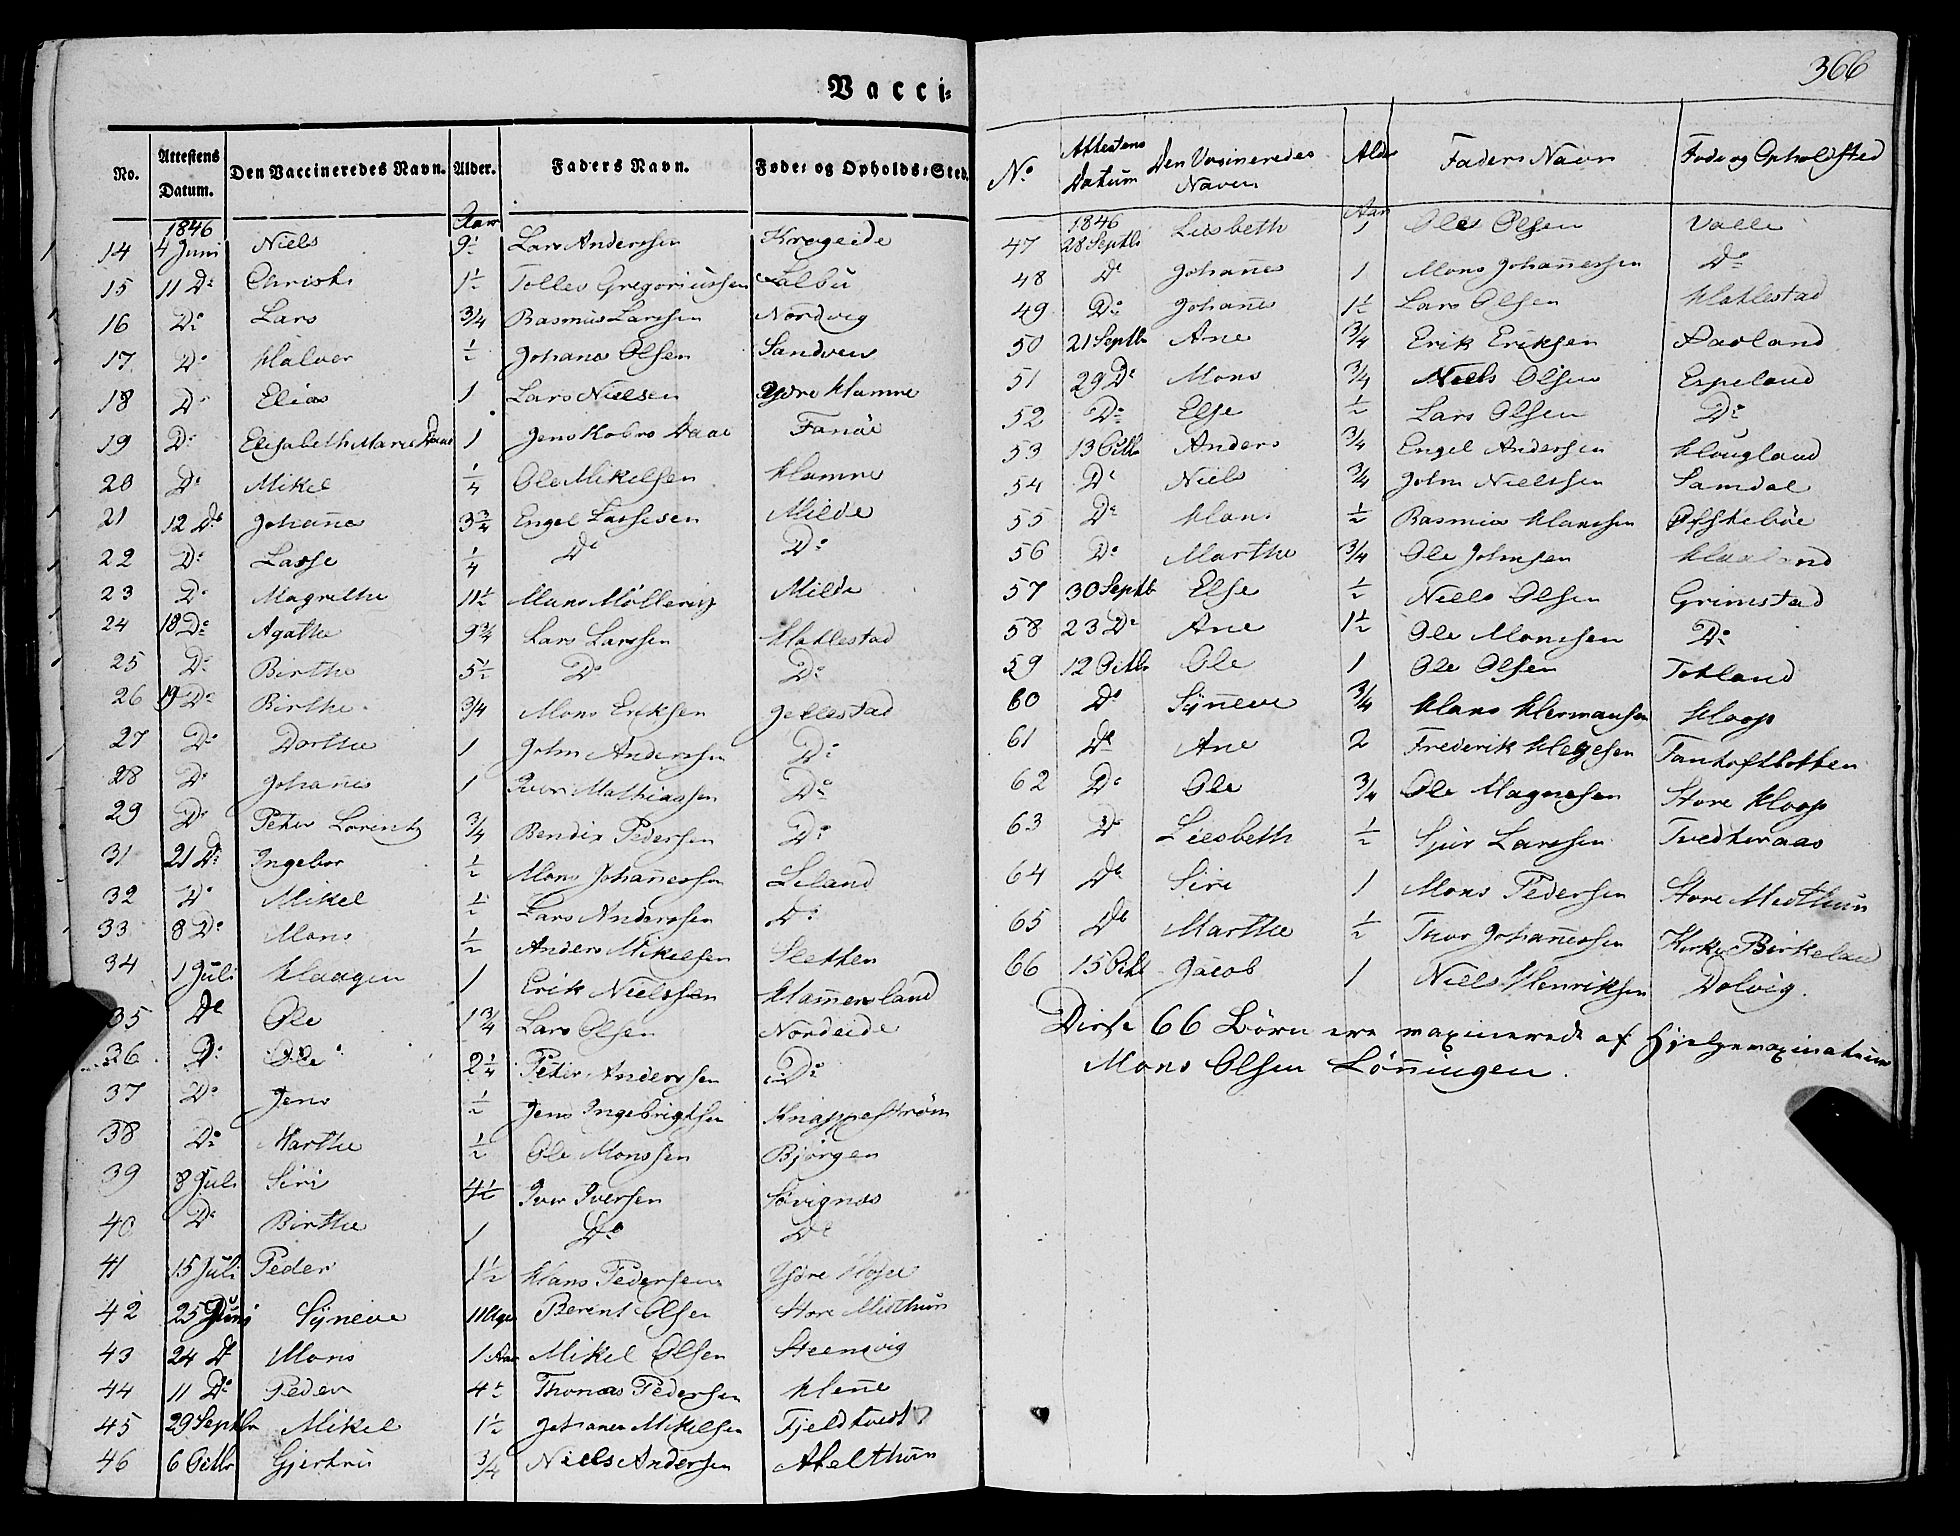 366
Vacci=
No. Attestens Datum. Den Vaccineredes Navn. Alder. Faders Navn. Føde= og Opholds=Sted.
1846 Aar
14 4 Juni Niels 9½ Lars Anderssen Krogeide
15 11 Do 1½ Tolles Gregoriussen
16 Do Lars 3/4 Rasmus Larssen Nordvig
17 Do Halvor ½ Johans Olsen Sandven
18 Do Elias 1 Lars Nielsen Ydre Hamre
19 Do Elisabeth Marie Daae 1 Jens Kobro Daae Fanöe
20 Do Mikel ¼ Ole Mikelsen Hamre
21 12 Do Johañes 3¾ Engel Lassesen Milde
22 Do Lasse ¼ Do Do
23 Do Magrethe 11½ Hans Möllerup Milde
24 18 Do Agathe 9¾ Lars Larssen Hatlestad
25 Do Birthe 5½ Do Do
26 19 Do Birthe 3/4 Mons Eriksen Jellestad
27 Do Dorthe 1 John Anderssen Do
28 Do Johañes 1 Iver Mathiassen Do
29 Do Peter Lorentz 3/4 Bendix Pedersen Do
31 21 Do Ingebor ½ Mons Johañessen Liland
32 Do Mikel ½ Lars Anderssen Do
33 8 Do Mons ½ Anders Mikelsen Sletten
34 1 Juli Haagen 1 Erik Nielssen Hamersland
35 Do Ole 1¾ Lars Olsen Nordeide
36 Do Ole 2¼ Peter Anderssen Do
37 Do Jens ½ Jens Ingebrigtsen Knappestrøm
38 Do Marthe ½ Ole Monssen Bjørgen
39 8 Juli Siri 4½ Iver Iversen Søvignes
40 Do Birthe 1 Do Do
41 15 Juli Peder 1½ Hans Pedersen Ydre
42 25 Juni Syneve 11 Uger Berent Olsen Store Midthun
43 24 Do Mons 1 Aar Mikel Olsen Steensvig
44 11 Do Peder 4½ Thomas Pedersen
45 29 Septbr Mikel 1½ Johanes Mikelsen Fjeldtvedt
46 6 Octbr Gjertru 3/4 Niels Andersen Apelthun
No Attestens Datum Den Vaxineredes Navn Alder Faders Navn Føde og Opholdsted
1846 Aar
47 28 Septbr Liesbeth 1 Ole Olsen Valle
48 Do Johañes 1 Mons Johañessen Do
49 Do Johañes 1½ Lars Olsen Hatlestad
50 21 Septbr Ane 3/4 Erik Eriksen
51 29 Do Mons 3/4 Niels Olsen Espeland
52 Do Else ½ Lars Olsen Do
53 13 Octbr Anders 3/4 Engel Andersen Hougland
54 Do Niels 3/4 John Nielssen Samdal
55 Do Hans ½ Rasmus Hanssen
56 Do Marthe 3/4 Ole Johnsen
57 30 Septbr Else ½ Niels Olsen Grimstad
58 23 Do Ane 1½ Ole Monssen Do
59 12 Octbr Ole 1 Ole Olsen Totland
60 Do Syñeve 3/4 Hans Hermansen Hoop
61 Do Ane 2 Frederik Helgesen Fantoftbotten
62 Do Ole 3/4 Ole Magnesen Store Hoop
63 Do Liesbeth ½ Sjur Larssen Tvedteraas
64 Do Sire 1 Mons Pedersen Store Midthun
65 Do Marthe ½ Thor Johañessen Kirke Birkeland
66 15 Octbr Jacob 1 Niels Henriksen Dolvig.
Disse 66 Børn ere vaxinerede af Hjelpevaxinatuur
Mons Olsen Löñingen.